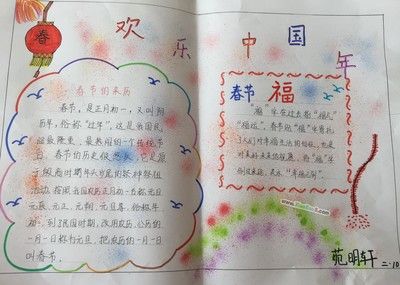 欢乐中国年
春
春节的来历
春节,是正月初一,又叫阴
历年,俗称"过年"。这是我国民
间最隆重、最热闹的一个传统节
日。春节的历史很悠久,它起源
于殷商时期年头岁尾的祭神祭祖
活动。按照我国农历正月初一古称元日
元辰、元正、元朔、元旦等,俗称年
初一,到了民国时期,改用公历,公历的
一月一日称为元旦,把农历的一月一日
叫春节。
春节 福
"福"字在过去指"福气"
"福运"。春节贴"福"字寄托
了人们对幸福生活的向往,也是
对美好未来的祝愿。将"福"字
倒过来贴,表示
范明轩
二·10